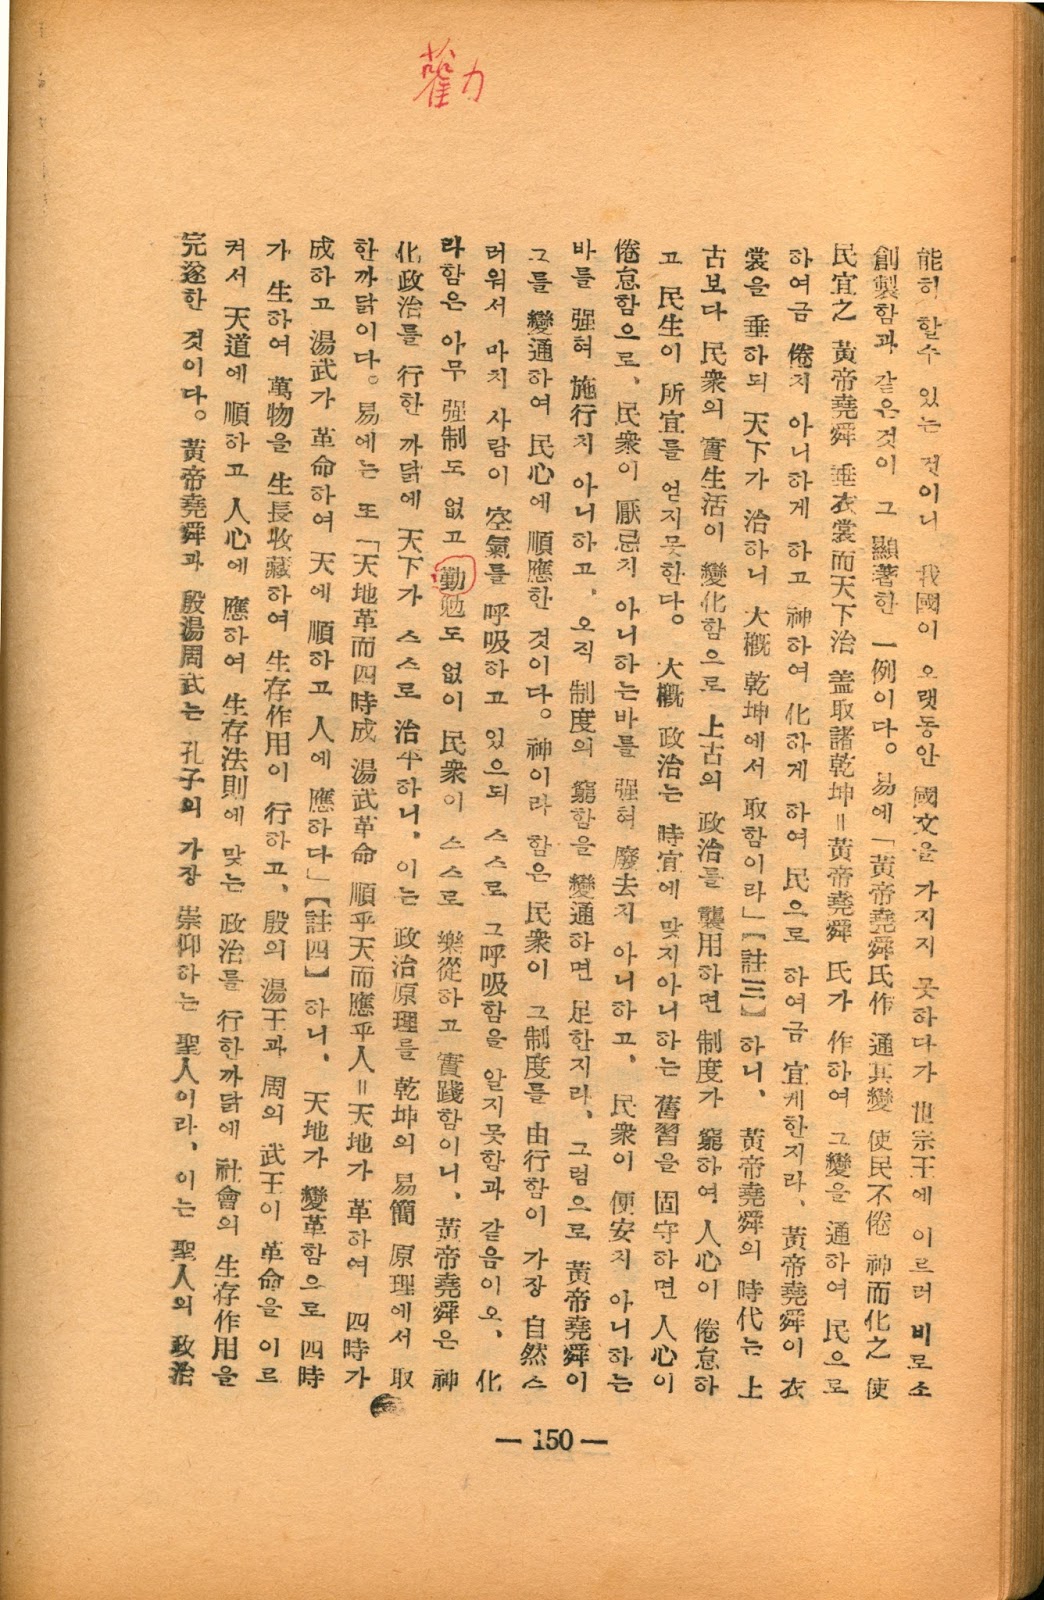 勸
能히 할수 있는 것이니 我國이 오랫동안 國文을 가지지 못하다가 世宗王에 이르러 비로소
創製함과 같은것이 그 顯著한 一例이다。易에「黃帝堯舜氏作 通其變 使民不倦 神而化之 使
民宜之 黃帝堯舜 垂衣裳而天下治 盖取諸乾坤＝黃帝堯舜 氏가 作하여 그變을 通하여 民으로
하여금 倦치 아니하게 하고 神하여 化하게 하여 民으로 하여금 宜케한지라、黃帝堯舜이 衣
裳을 垂하되 天下가 治하니 大槪 乾坤에서 取함이라」【註三】하니、黃帝堯舜의 時代는 上
古보다 民衆의 實生活이 變化함으로 上古의 政治를 襲用하면 制度가 窮하여、人心이 倦怠하
고 民生이 所宜를 얻지못한다。大槪 政治는 時宜에 맞지아니하는 舊習을 固守하면 人心이
倦怠함으로、民衆이 厭忌치 아니하는바를 强혀 廢去치 아니하고、民衆이 便安치 아니하는
바를 强혀 施行치 아니하고、오직 制度의 窮함을 變通하면 足한지라、그럼으로 黃帝堯舜이
그를 變通하여 民心에 順應한 것이다。神이라 함은 民衆이 그制度를 由行함이 가장 自然스
러워서 마치 사람이 空氣를 呼吸하고 있으되 스스로 그呼吸함을 알지못함과 같음이오、化
라함은 아무 强制도 없고 勤勉도 없이 民衆이 스스로 樂從하고 實踐함이니、黃帝堯舜은 神
化政治를 行한 까닭에 天下가 스스로 治平하니、이는 政治原理를 乾坤의 易簡 原理에서 取
한까닭이다。易에는 또「天地革而四時成 湯武革命 順乎天而應乎人＝天地가 革하여 四時가
成하고 湯武가 革命하여 天에 順하고 人에 應하다」【註四】하니、天地가 變革함으로 四時
가 生하여 萬物을 生長收藏하여 生存作用이 行하고、殷의 湯王과 周의 武王이 革命을 이르
켜서 天道에 順하고 人心에 應하여 生存法則에 맞는 政治를 行한까닭에 社會의 生存作用을
完遂한 것이다。黃帝堯舜과 殷湯周武는 孔子의 가장 崇仰하는 聖人이라、이는 聖人의 政治
— 150 —